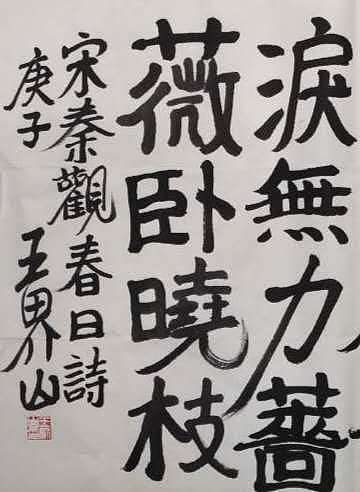 淚無力薔
薇卧曉枝
宋秦觀春日詩
庚子 王界山